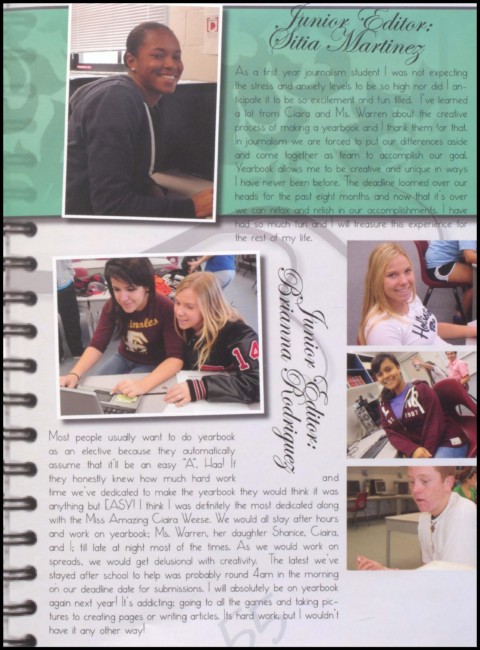 Junior Editor:
Sitia Martinez
As a first year journalism student I was not expecting
the stress and anxiety levels to be so high nor did I an-
ticipate it to be so excitement and fun filled. I've learned
a lot from Ciara and Ms. Warren about the creative
process of making a yearbook and I thank them for that.
In journalism we are forced to put our differences aside
and come together as team to accomplish our goal.
Yearbook allows me to be creative and unique in ways
I have never been before. The deadline loomed over our
heads for the past eight months and now that it's over
we can relax and relish in our accomplishments. I have
had so much fun and I will treasure this experience for
the rest of my life.
Junior Editor:
Brianna Rodriguez
Most people usually want to do yearbook
as an elective because they automatically
assume that it'll be an easy "A". Haa! If
they honestly knew how much hard work and
time we've dedicated to make the yearbook they would think it was
anything but EASY! I think I was definitely the most dedicated along
with the Miss Amazing Ciaira Weese. We would all stay after hours
and work on yearbook; Ms. Warren, her daughter Shanice, Ciaira,
and I; till late at night most of the times. As we would work on
spreads, we would get delusional with creativity. The latest we've
stayed after school to help was probably round 4am in the morning
on our deadline date for submissions. I will absolutely be on yearbook
again next year! It's addicting; going to all the games and taking pic-
tures to creating pages or writing articles. Its hard work, but I wouldn't
have it any other way!
14